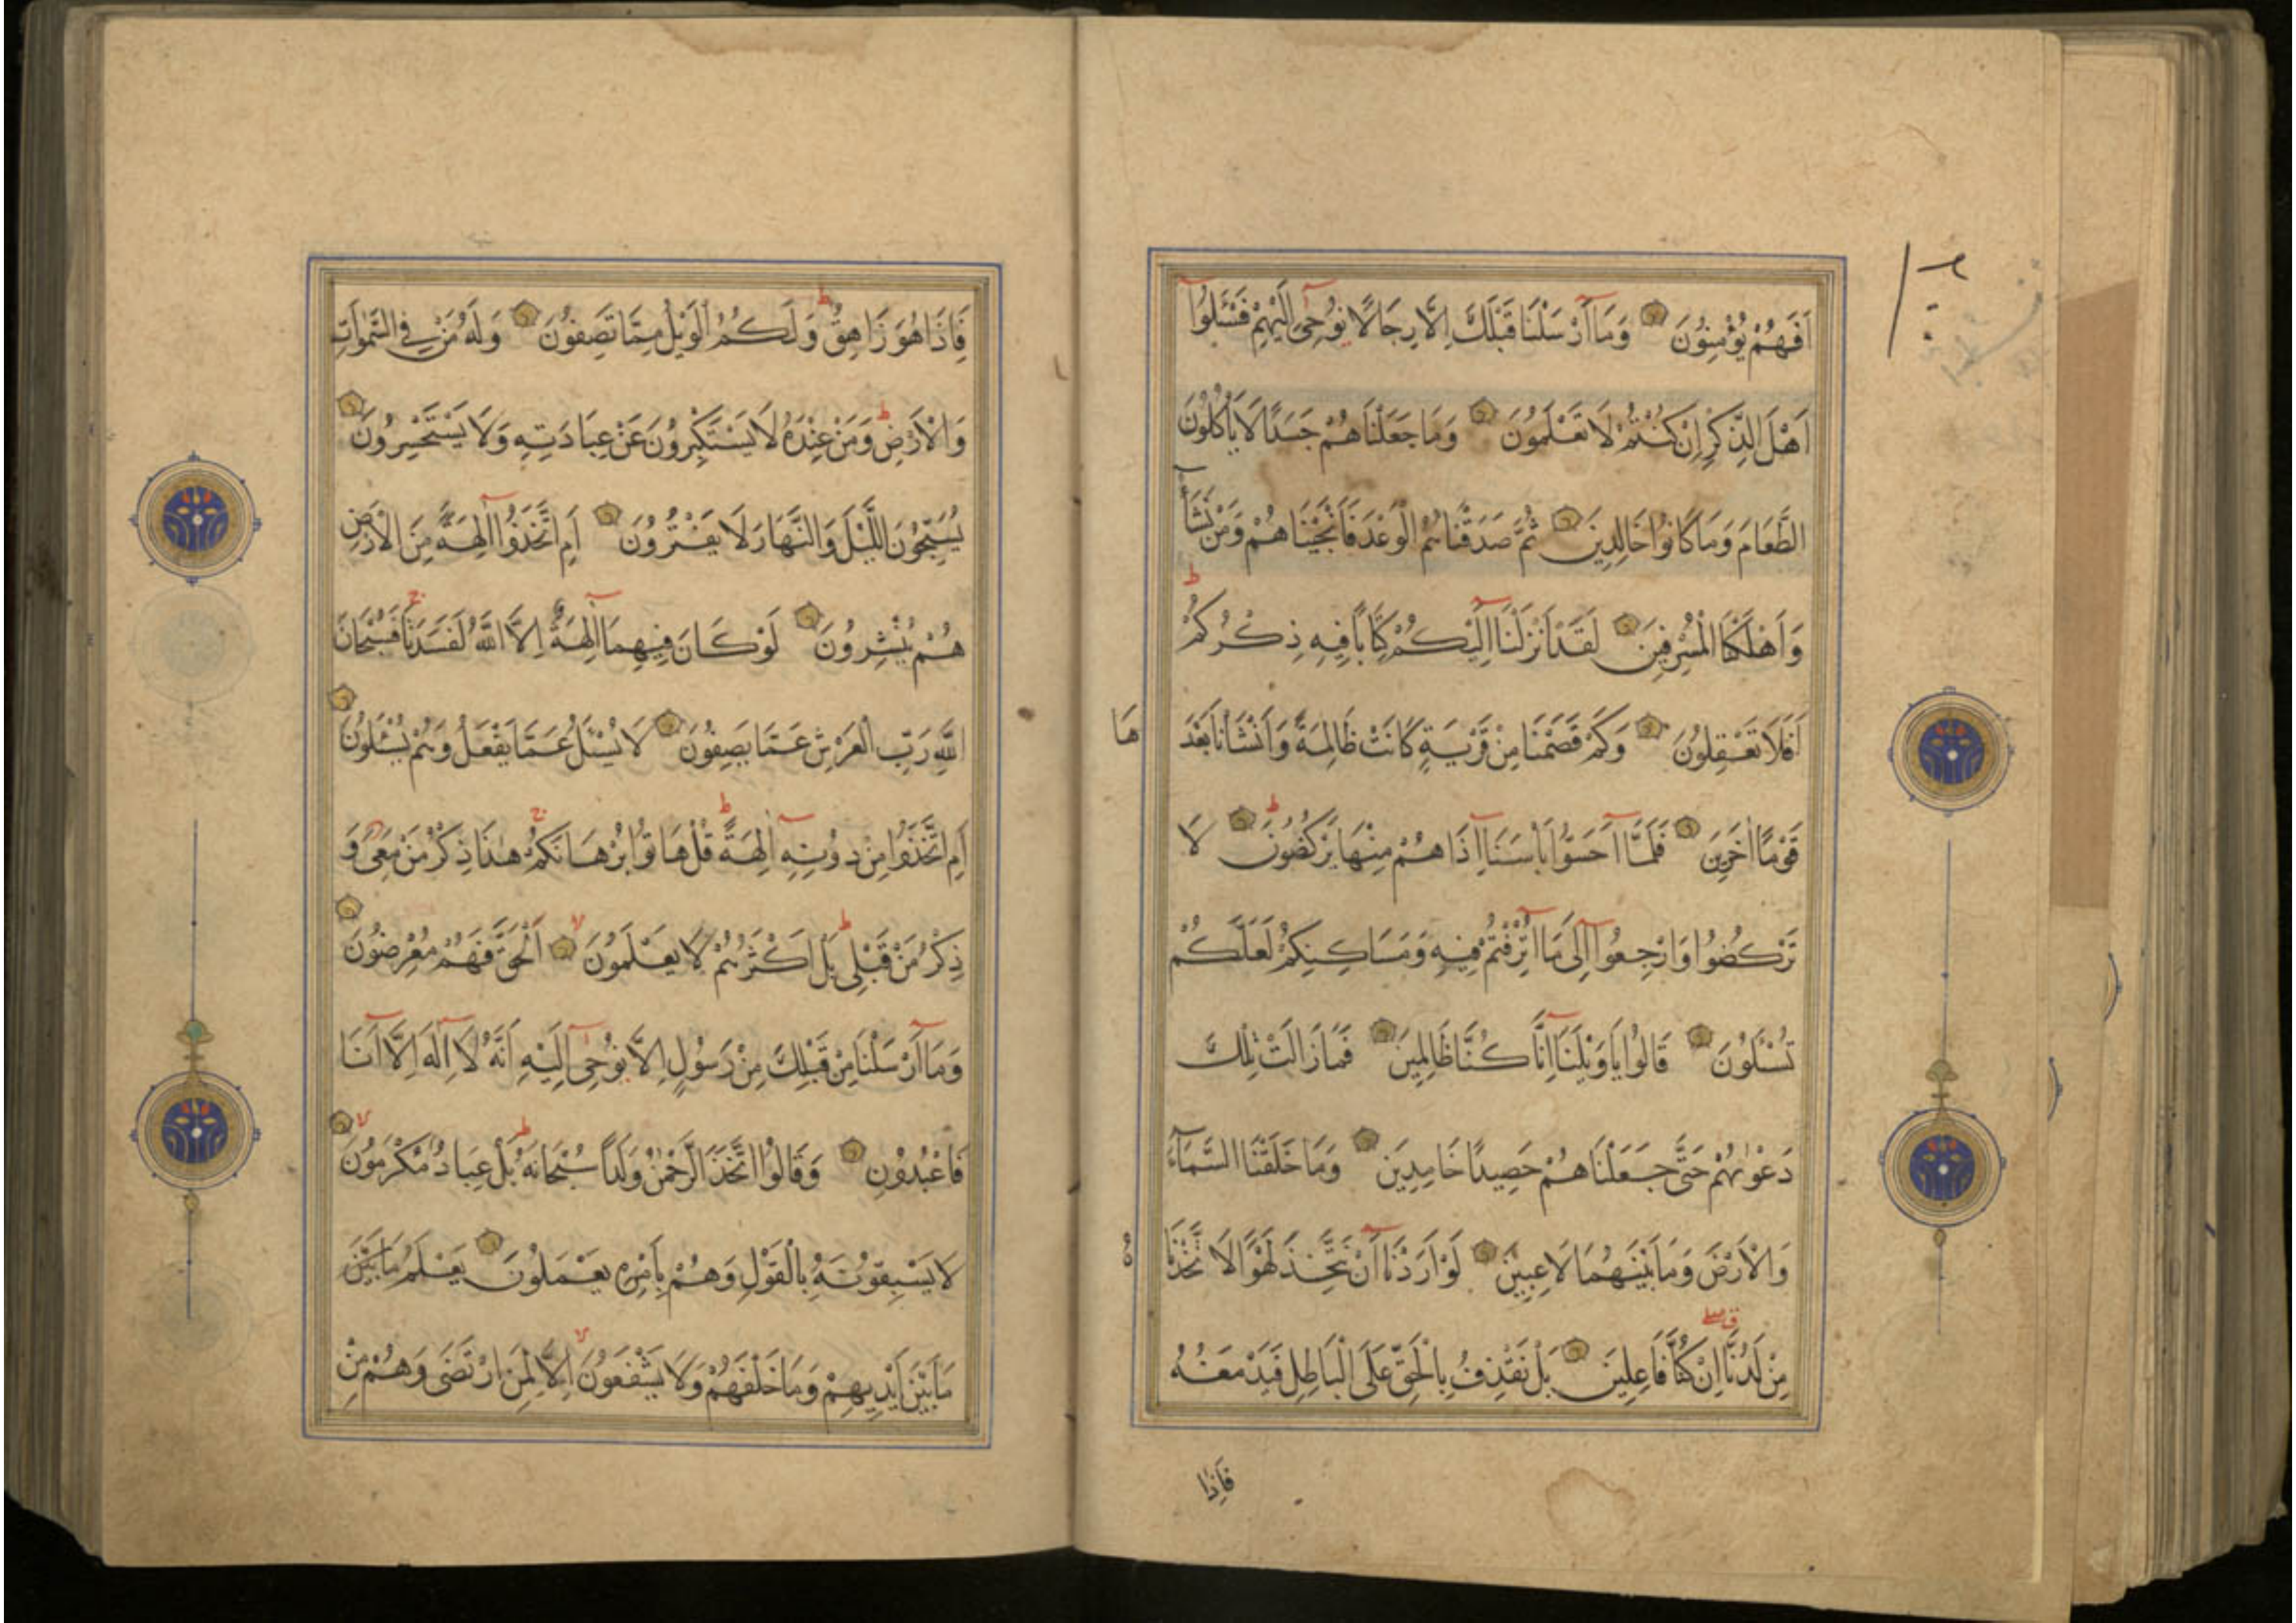 اَفَهُمْ يُؤْمِنُونَ وَمَا اَرْسَلْنَا قَبْلَكَ اِلَّا رِجَالًا نُوحِى اِلَيْهِمْ فَسْـَٔلُوا
اَهْلَ الذِّكْرِ اِنْ كُنْتُمْ لَا تَعْلَمُونَ وَمَا جَعَلْنَاهُمْ جَسَدًا لَا يَأْكُلُونَ
الطَّعَامَ وَمَا كَانُوا خَالِدِينَ ثُمَّ صَدَقْنَاهُمُ الْوَعْدَ فَاَنْجَيْنَاهُمْ وَمَنْ نَشَاءُ
وَاَهْلَكْنَا الْمُسْرِفِينَ لَقَدْ اَنْزَلْنَا اِلَيْكُمْ كِتَابًا فِيهِ ذِكْرُكُمْ
اَفَلَا تَعْقِلُونَ وَكَمْ قَصَمْنَا مِنْ قَرْيَةٍ كَانَتْ ظَالِمَةً وَاَنْشَأْنَا بَعْدَ
هَا
قَوْمًا اٰخَرِينَ فَلَمَّا اَحَسُّوا بَأْسَنَا اِذَا هُمْ مِنْهَا يَرْكُضُونَ لَا
تَرْكُضُوا وَارْجِعُوا اِلٰى مَا اُتْرِفْتُمْ فِيهِ وَمَسَاكِنِكُمْ لَعَلَّكُمْ
تُسْـَٔلُونَ قَالُوا يَاوَيْلَنَا اِنَّا كُنَّا ظَالِمِينَ فَمَا زَالَتْ تِلْكَ
دَعْوٰيهُمْ حَتَّى جَعَلْنَاهُمْ حَصِيدًا خَامِدِينَ وَمَا خَلَقْنَا السَّمَاءَ
وَالْاَرْضَ وَمَا بَيْنَهُمَا لَاعِبِينَ لَوْ اَرَدْنَا اَنْ نَتَّخِذَ لَهْوًا لَاتَّخَذْنَا
مِنْ لَدُنَّا اِنْ كُنَّا فَاعِلِينَ بَلْ نَقْذِفُ بِالْحَقِّ عَلَى الْبَاطِلِ فَيَدْمَغُهُ
فَاِذَا
فَاِذَا هُوَ زَاهِقٌ وَلَكُمُ الْوَيْلُ مِمَّا تَصِفُونَ وَلَهُ مَنْ فِي السَّمٰوَاتِ
وَالْاَرْضِ وَمَنْ عِنْدَهُ لَا يَسْتَكْبِرُونَ عَنْ عِبَادَتِهِ وَلَا يَسْتَحْسِرُونَ
يُسَبِّحُونَ اللَّيْلَ وَالنَّهَارَ لَا يَفْتُرُونَ اَمِ اتَّخَذُوا اٰلِهَةً مِنَ الْاَرْضِ
هُمْ يُنْشِرُونَ لَوْ كَانَ فِيهِمَا اٰلِهَةٌ اِلَّا اللّٰهُ لَفَسَدَتَا فَسُبْحَانَ
اللّٰهِ رَبِّ الْعَرْشِ عَمَّا يَصِفُونَ لَا يُسْـَٔلُ عَمَّا يَفْعَلُ وَهُمْ يُسْـَٔلُونَ
اَمِ اتَّخَذُوا مِنْ دُونِهِ اٰلِهَةً قُلْ هَاتُوا بُرْهَانَكُمْ هٰذَا ذِكْرُ مَنْ مَعِىَ وَ
ذِكْرُ مَنْ قَبْلِى بَلْ اَكْثَرُهُمْ لَا يَعْلَمُونَ اَلْحَقَّ فَهُمْ مُعْرِضُونَ
وَمَا اَرْسَلْنَا مِنْ قَبْلِكَ مِنْ رَسُولٍ اِلَّا نُوحِى اِلَيْهِ اَنَّهُ لَا اِلٰهَ اِلَّا اَنَا
فَاعْبُدُونِ وَقَالُوا اتَّخَذَ الرَّحْمٰنُ وَلَدًا سُبْحَانَهُ بَلْ عِبَادٌ مُكْرَمُونَ
لَا يَسْبِقُونَهُ بِالْقَوْلِ وَهُمْ بِاَمْرِهِ يَعْمَلُونَ يَعْلَمُ مَا بَيْنَ
مَا بَيْنَ اَيْدِيهِمْ وَمَا خَلْفَهُمْ وَلَا يَشْفَعُونَ اِلَّا لِمَنِ ارْتَضٰى وَهُمْ مِنْ